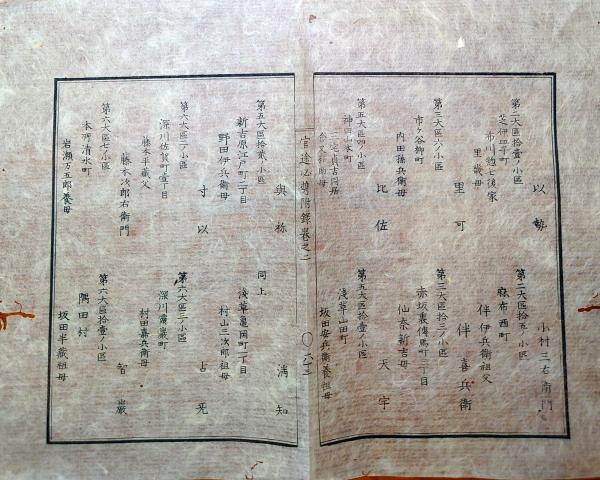 第二大區拾壹ノ小區
芝伊皿子町
市川惣七後家
里﨟母
以勢
第二大區拾五ノ小區
麻布西町
伴伊兵衛祖父
小村三右衛門
第三大區六ノ小區
市ヶ谷柳町
内田孫兵衛母
里可
第三大區拾三ノ小區
赤坂裏傳馬町二丁目
仙奈新吉母
伴喜兵衛
第五大區四ノ小區
神田山本町
比佐
第五大區拾壹ノ小區
淺草山田町
坂田安兵衛養祖母
天宇
官途必携附錄卷之二
第五大區拾貳ノ小區
新吉原江戸町二丁目
野田伊兵衛母
與祢
同上
淺草亀岡町二丁目
村山三次郎祖母
満知
第六大區一ノ小區
深川佐賀町壹丁目
藤本半藏父
藤本次郎右衛門
寸以
第六大區二ノ小區
深川靈巌町
村田嘉兵衛母
占旡
第六大區七ノ小區
本所清水町
岩瀬万五郎養母
第六大區拾壹ノ小區
隅田村
坂田半藏祖母
智巌